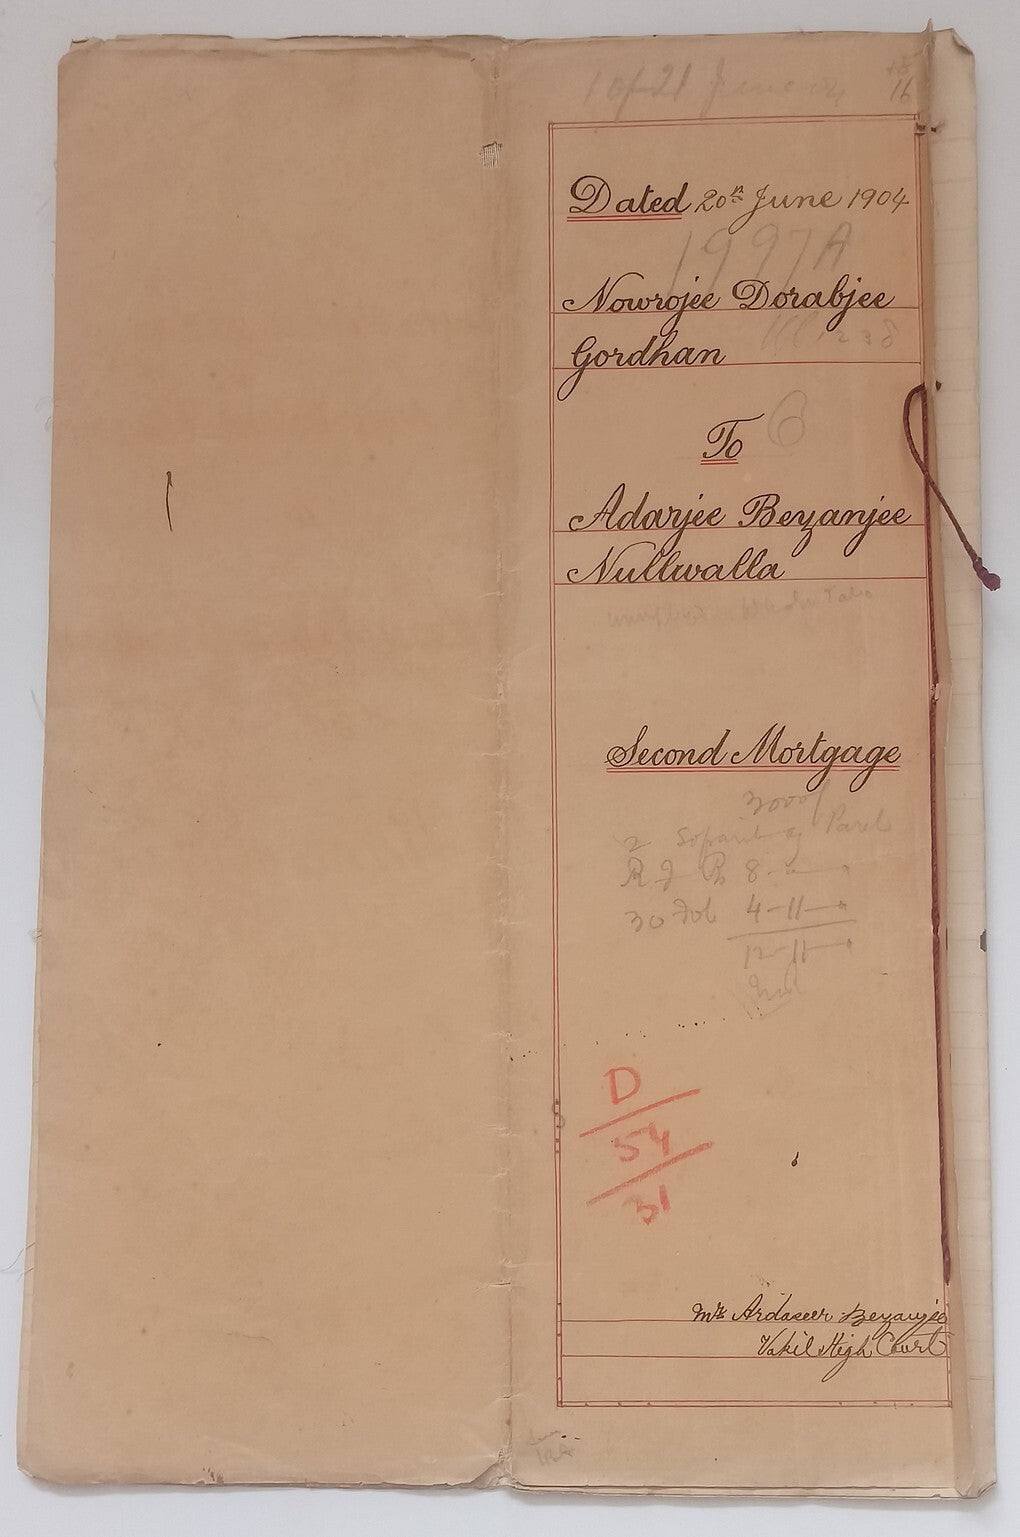 1 of 21 June 04
16
Dated 20th June 1904
1997A
Nowrojee Dorabjee
Gordhan
To
Adarjee Bezanjee
Nullwalla
Second Mortgage
3000/
2 Parel
8
30 4-11-
12-11-
D
54
31
Mr Ardaseer Bezanjee
Vakil High Court